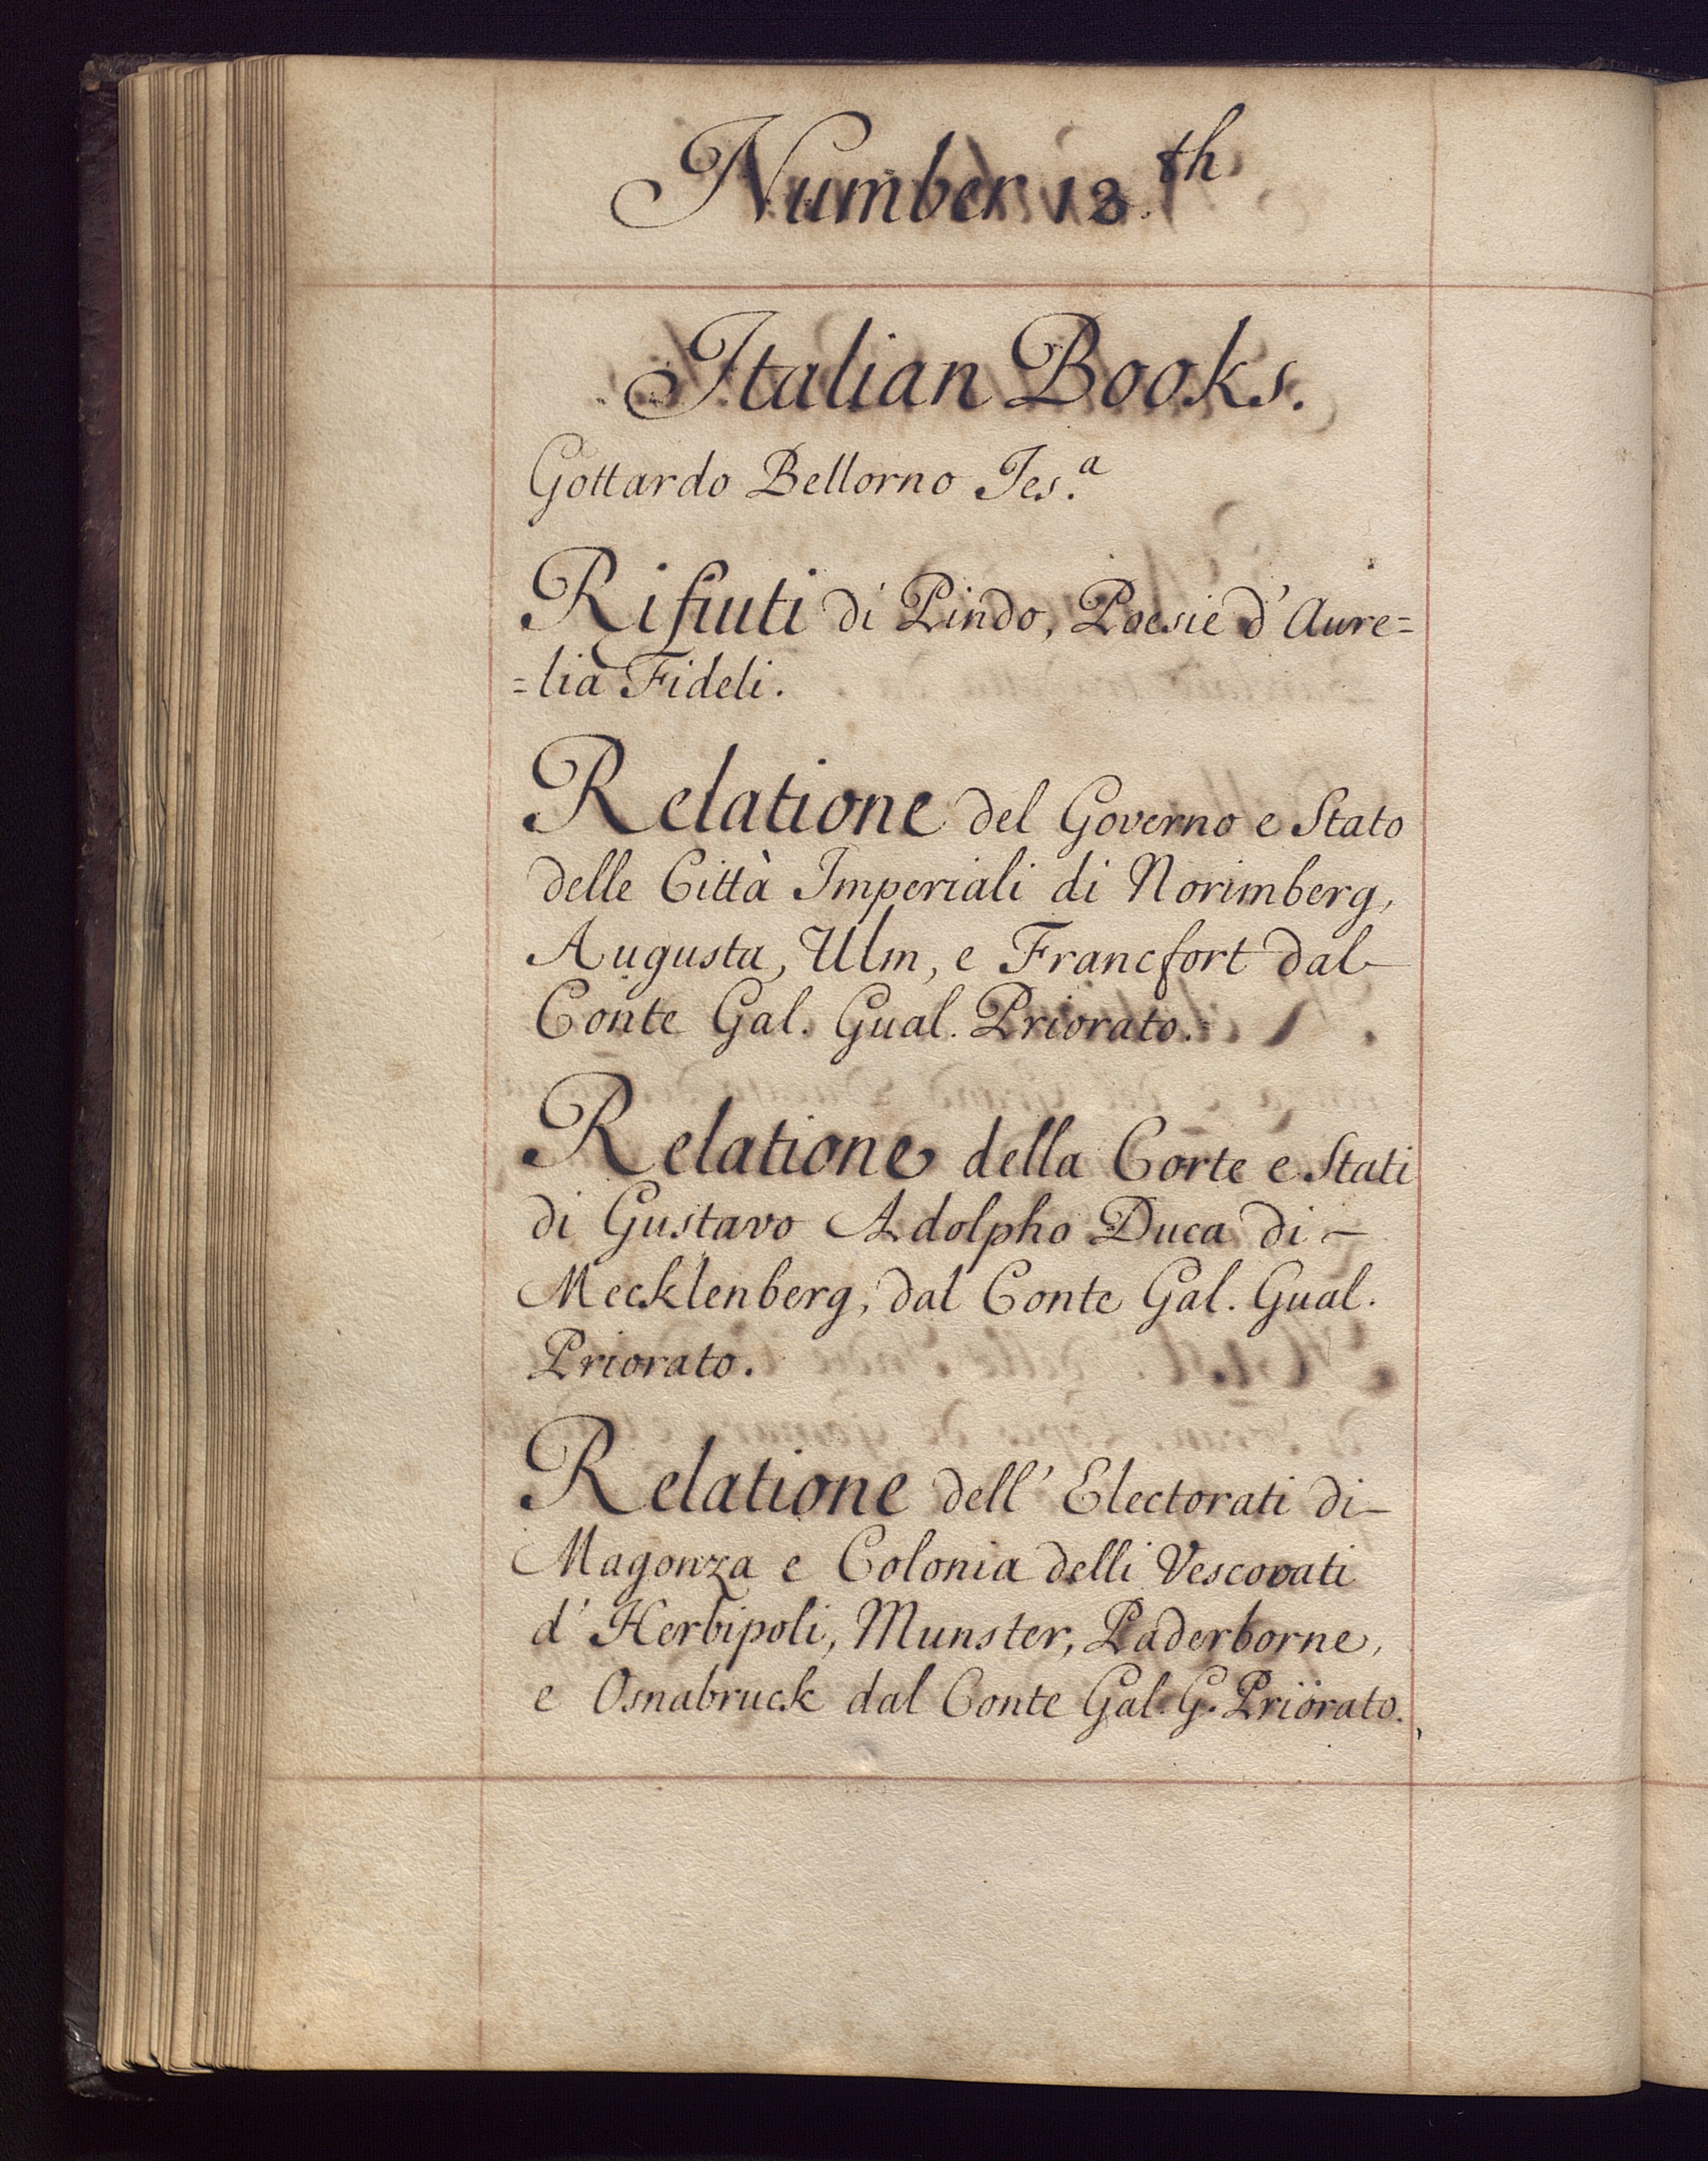 Number 13.th
Italian Books.
Gottardo Bellorno Jes.a
Rifiuti di Pindo, Poesie d'Aure=
=lia Fideli.
Relatione del Governo e Stato
delle Città Imperiali di Norimberg,
Augusta, Ulm, e Francfort dal
Conte Gal. Gual. Priorato.
Relatione della Corte e Stati
di Gustavo Adolpho Duca di –
Mecklenberg, dal Conte Gal. Gual.
Priorato.
Relatione dell' Electorati di –
Magonza e Colonia delli Vescovati
d' Herbipoli, Munster, Paderborne,
e Osnabruck dal Conte Gal. G. Priorato.